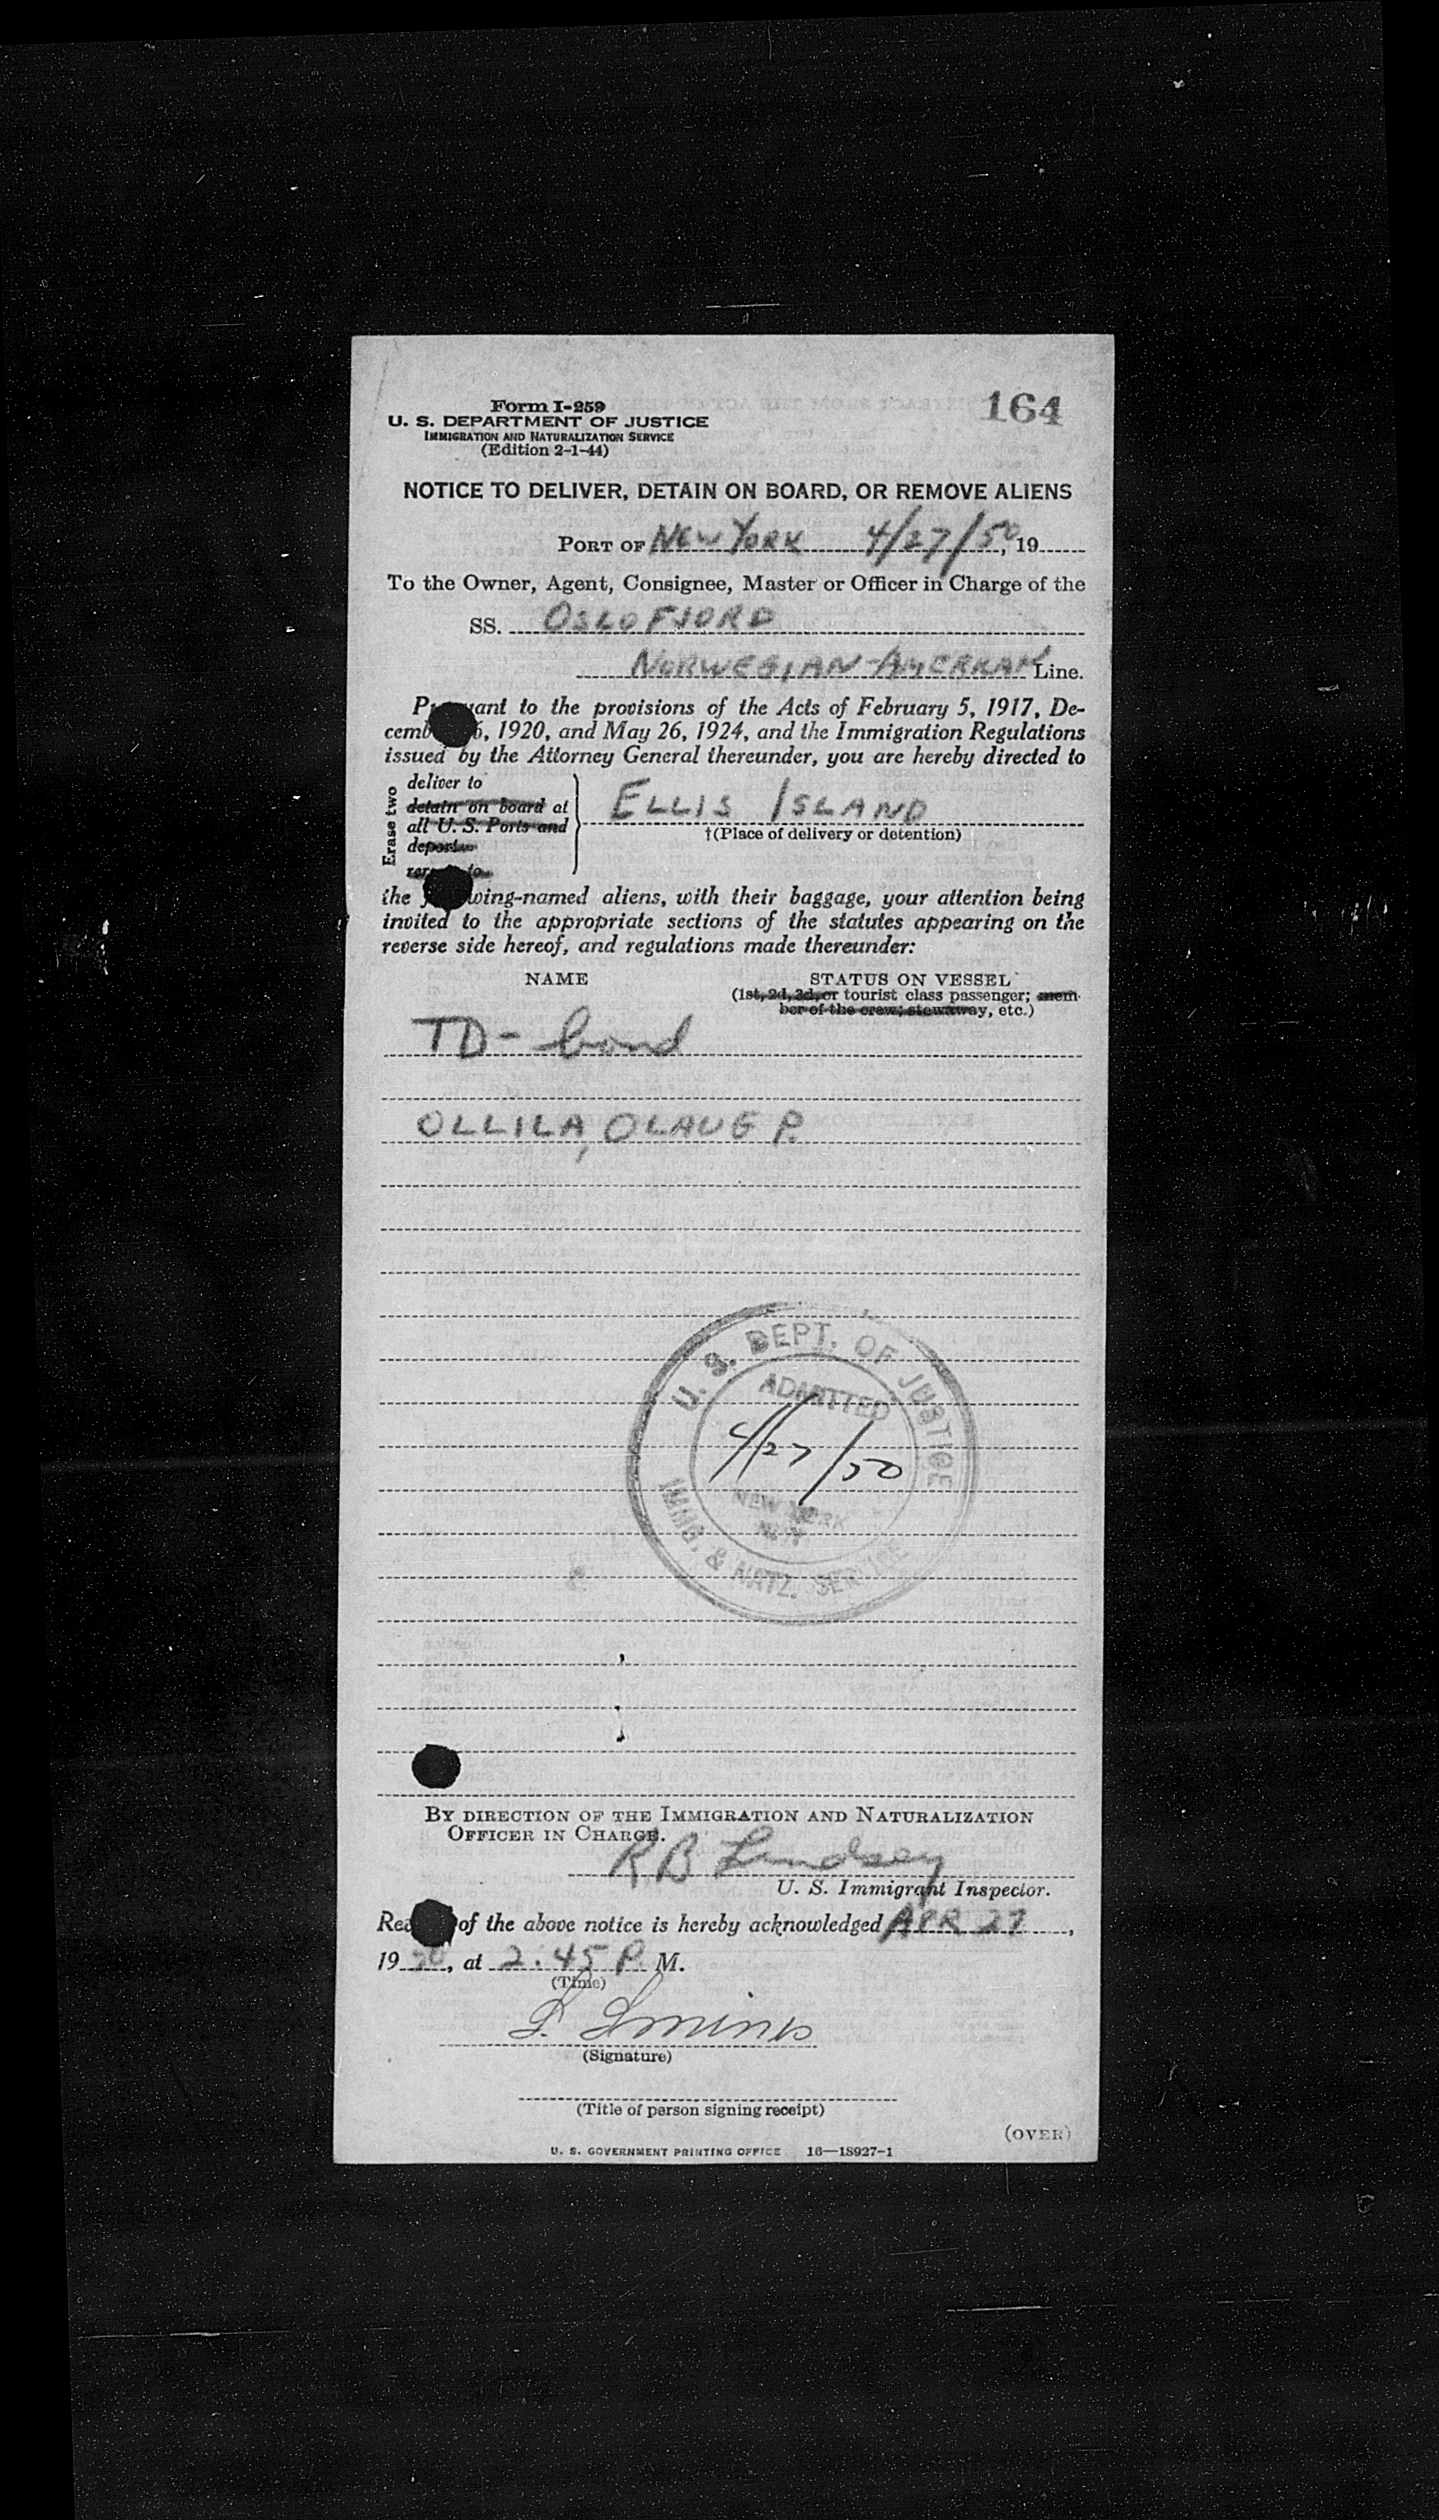 164
Form I-259
U. S. DEPARTMENT OF JUSTICE
IMMIGRATION AND NATURALIZATION SERVICE
(Edition 2-1-44)
NOTICE TO DELIVER, DETAIN ON BOARD, OR REMOVE ALIENS
PORT OF NEW YORK 4/27/50, 19
To the Owner, Agent, Consignee, Master or Officer in Charge of the
SS. OSLOFJORD
NORWEGIAN-AMERICAN Line.
Pursuant to the provisions of the Acts of February 5, 1917, De-
cember 26, 1920, and May 26, 1924, and the Immigration Regulations
issued by the Attorney General thereunder, you are hereby directed to
Erase two
deliver to
detain on board at
all U. S. Ports and
deport
ELLIS ISLAND
†(Place of delivery or detention)
the following-named aliens, with their baggage, your attention being
invited to the appropriate sections of the statutes appearing on the
reverse side hereof, and regulations made thereunder:
NAME STATUS ON VESSEL
(1st, 2d, 3d, or tourist class passenger; mem-
ber of the crew; stowaway, etc.)
TD- bond
OLLILA, OLAUG P.
U. S. DEPT. OF JUSTICE
ADMITTED
4/27/50
NEW YORK
N. Y.
IMMG. & NATZ. SERVICE
BY DIRECTION OF THE IMMIGRATION AND NATURALIZATION
OFFICER IN CHARGE.
RB Lindsey
U. S. Immigrant Inspector.
Receipt of the above notice is hereby acknowledged APR 27,
1950, at 2:45 P. M.
(Time)
(Signature)
(Title of person signing receipt)
(OVER)
U. S. GOVERNMENT PRINTING OFFICE 16—18927-1